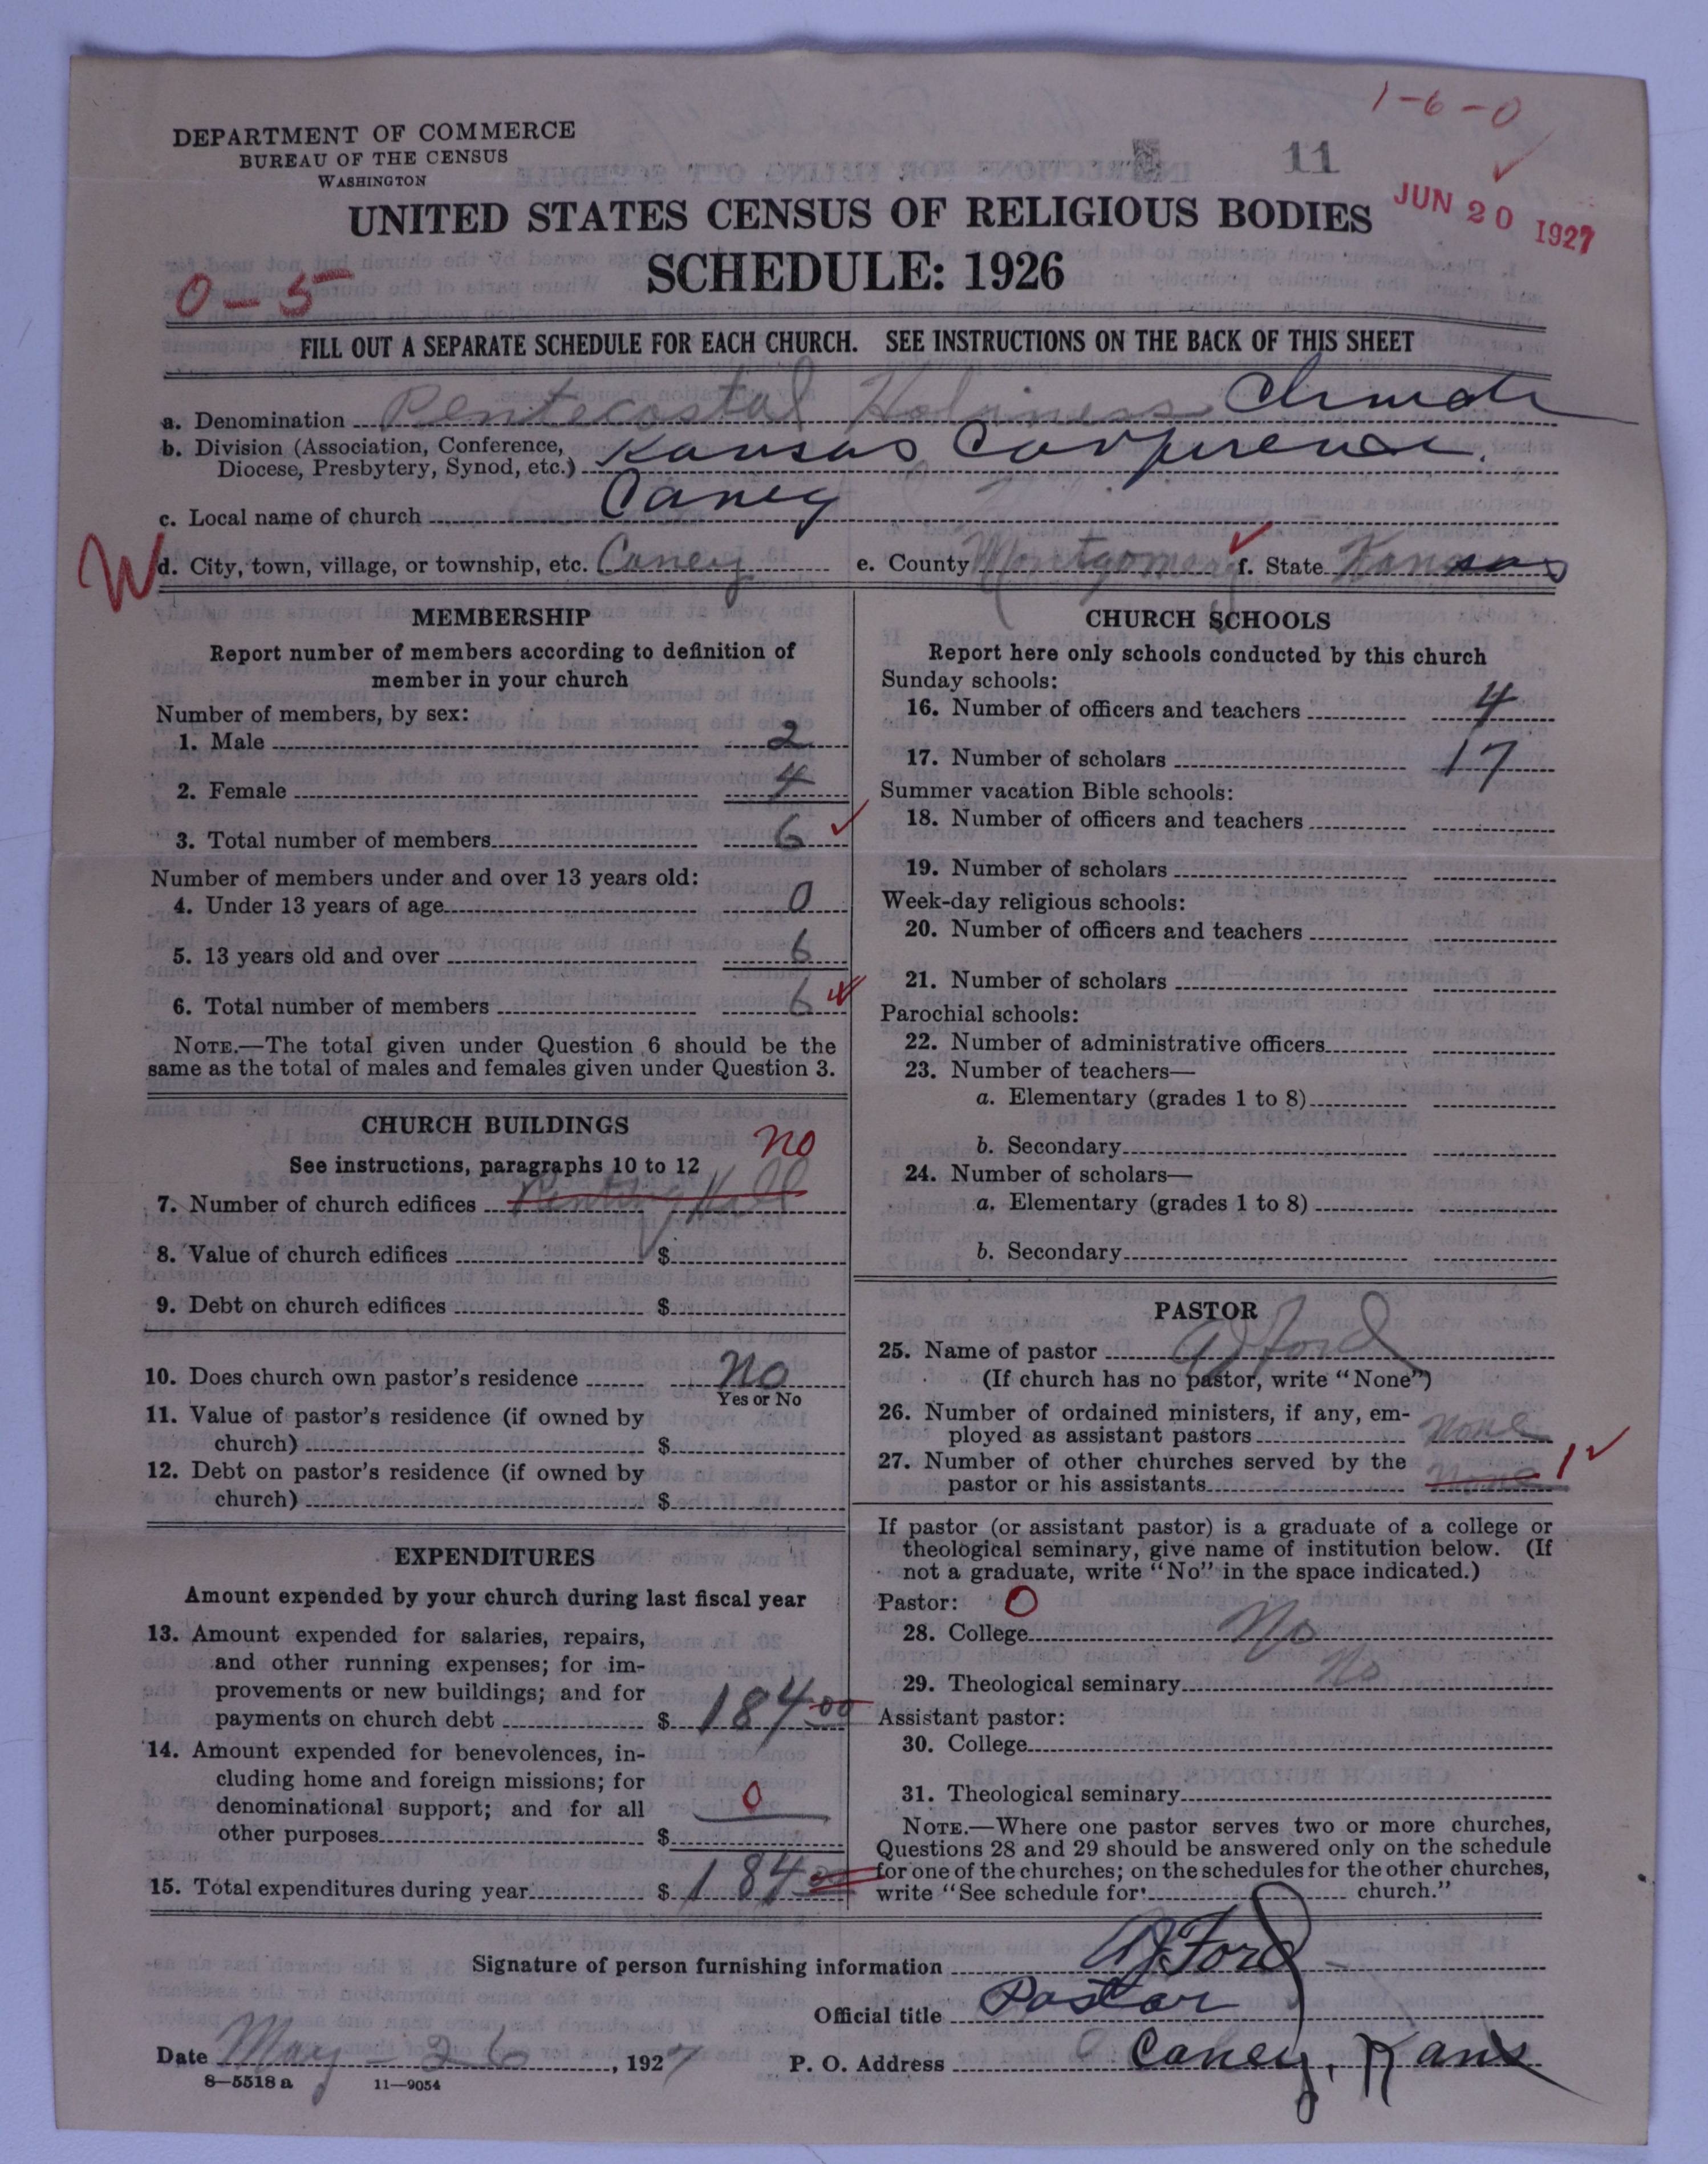 1-6-0
DEPARTMENT OF COMMERCE
BUREAU OF THE CENSUS
WASHINGTON
11
JUN 20 1927
UNITED STATES CENSUS OF RELIGIOUS BODIES
SCHEDULE: 1926
0-5
FILL OUT A SEPARATE SCHEDULE FOR EACH CHURCH. SEE INSTRUCTIONS ON THE BACK OF THIS SHEET
a. Denomination Pentecostal Holiness Church
b. Division (Association, Conference, Diocese, Presbytery, Synod, etc.) Kansas Conference.
c. Local name of church Caney
W
d. City, town, village, or township, etc. Caney e. County Montgomery f. State Kansas
MEMBERSHIP
Report number of members according to definition of
member in your church
Number of members, by sex:
1. Male 2
2. Female 4
3. Total number of members 6
Number of members under and over 13 years old:
4. Under 13 years of age 0
5. 13 years old and over 6
6. Total number of members 6
NOTE.—The total given under Question 6 should be the
same as the total of males and females given under Question 3.
CHURCH BUILDINGS
no
See instructions, paragraphs 10 to 12
7. Number of church edifices Renting Hall
8. Value of church edifices $
9. Debt on church edifices $
10. Does church own pastor's residence No
Yes or No
11. Value of pastor's residence (if owned by
church) $
12. Debt on pastor's residence (if owned by
church) $
EXPENDITURES
Amount expended by your church during last fiscal year
13. Amount expended for salaries, repairs,
and other running expenses; for im-
provements or new buildings; and for
payments on church debt $ 184.00
14. Amount expended for benevolences, in-
cluding home and foreign missions; for
denominational support; and for all 0
other purposes $
15. Total expenditures during year $ 184.00
CHURCH SCHOOLS
Report here only schools conducted by this church
Sunday schools:
16. Number of officers and teachers 4
17. Number of scholars 17
Summer vacation Bible schools:
18. Number of officers and teachers
19. Number of scholars
Week-day religious schools:
20. Number of officers and teachers
21. Number of scholars
Parochial schools:
22. Number of administrative officers
23. Number of teachers—
a. Elementary (grades 1 to 8)
b. Secondary
24. Number of scholars—
a. Elementary (grades 1 to 8)
b. Secondary
PASTOR
25. Name of pastor AJ Ford
(If church has no pastor, write "None")
26. Number of ordained ministers, if any, em-
ployed as assistant pastors none
27. Number of other churches served by the
pastor or his assistants none 1
If pastor (or assistant pastor) is a graduate of a college or
theological seminary, give name of institution below. (If
not a graduate, write "No" in the space indicated.)
Pastor: 0
28. College No
29. Theological seminary No
Assistant pastor:
30. College
31. Theological seminary
NOTE.—Where one pastor serves two or more churches,
Questions 28 and 29 should be answered only on the schedule
for one of the churches; on the schedules for the other churches,
write "See schedule for church."
Signature of person furnishing information AJ Ford
Official title Pastor
Date May - 26, 1927 P. O. Address Caney, Kans
8-5518 a 11-9054